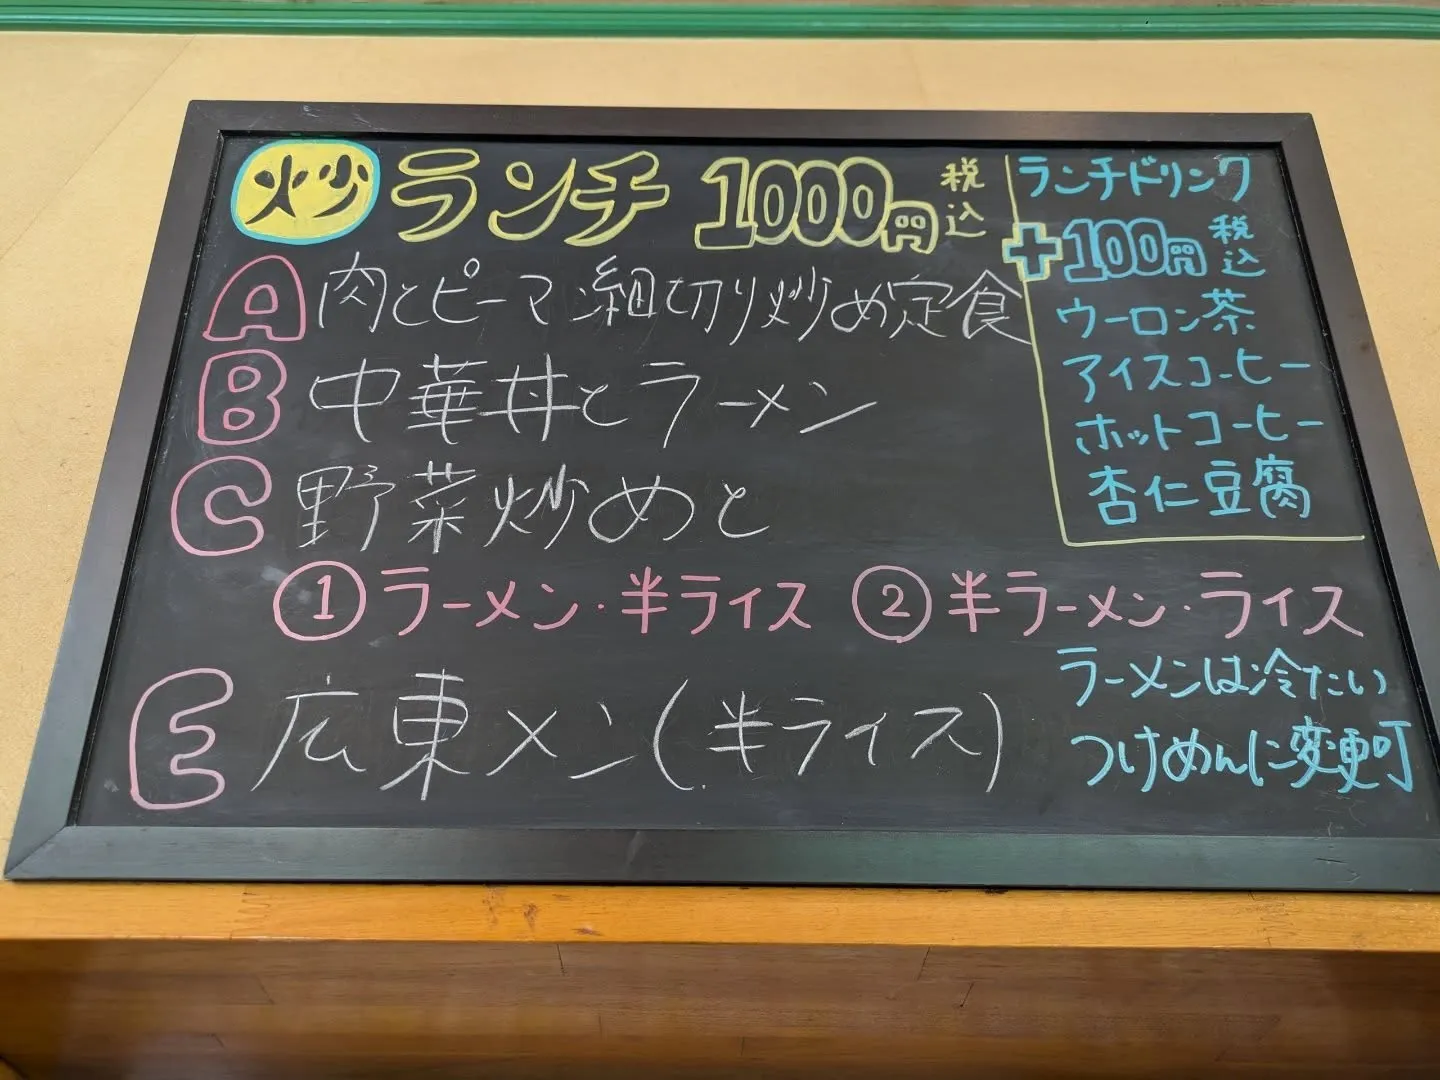 炒 ランチ 1000円 税込
A 肉とピーマン細切り炒め定食
B 中華丼とラーメン
C 野菜炒めと
①ラーメン・半ライス ②半ラーメン・ライス
E 広東メン(半ライス)
ランチドリンク
+100円 税込
ウーロン茶
アイスコーヒー
ホットコーヒー
杏仁豆腐
ラーメンは冷たい
つけめんに変更可